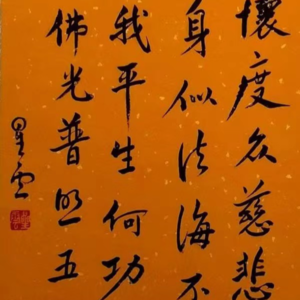 懷度众慈悲
身似法海不
我平生何功
佛光普照五
星雲